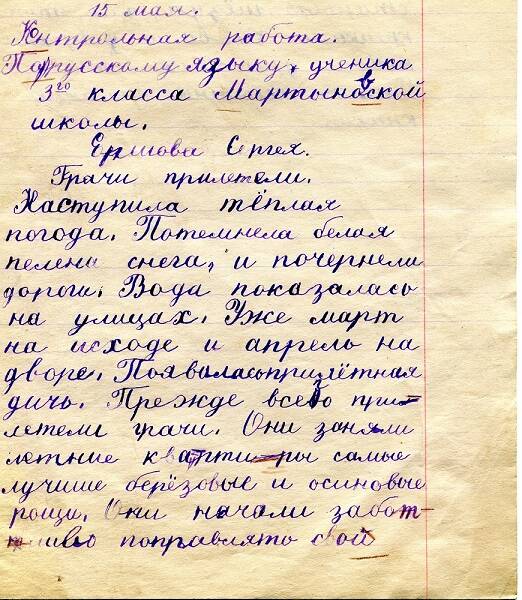 15 мая.
Контрольная работа.
По русскому языку, ученика
3го класса Мартыновской
школы.
Ершова Сергея.
Грачи прилетели.
Наступила тёплая
погода. Потемнела белая
пелена снега, и почернели
дороги. Вода показалась
на улицах. Уже март
на исходе и апрель на
дворе. Появалась прилётная
дичь. Прежде всего при-
летели грачи. Они заняли
летние квартиры самые
лучшие берёзовые и осиновые
рощи. Они начали забот-
ливо поправлять свои